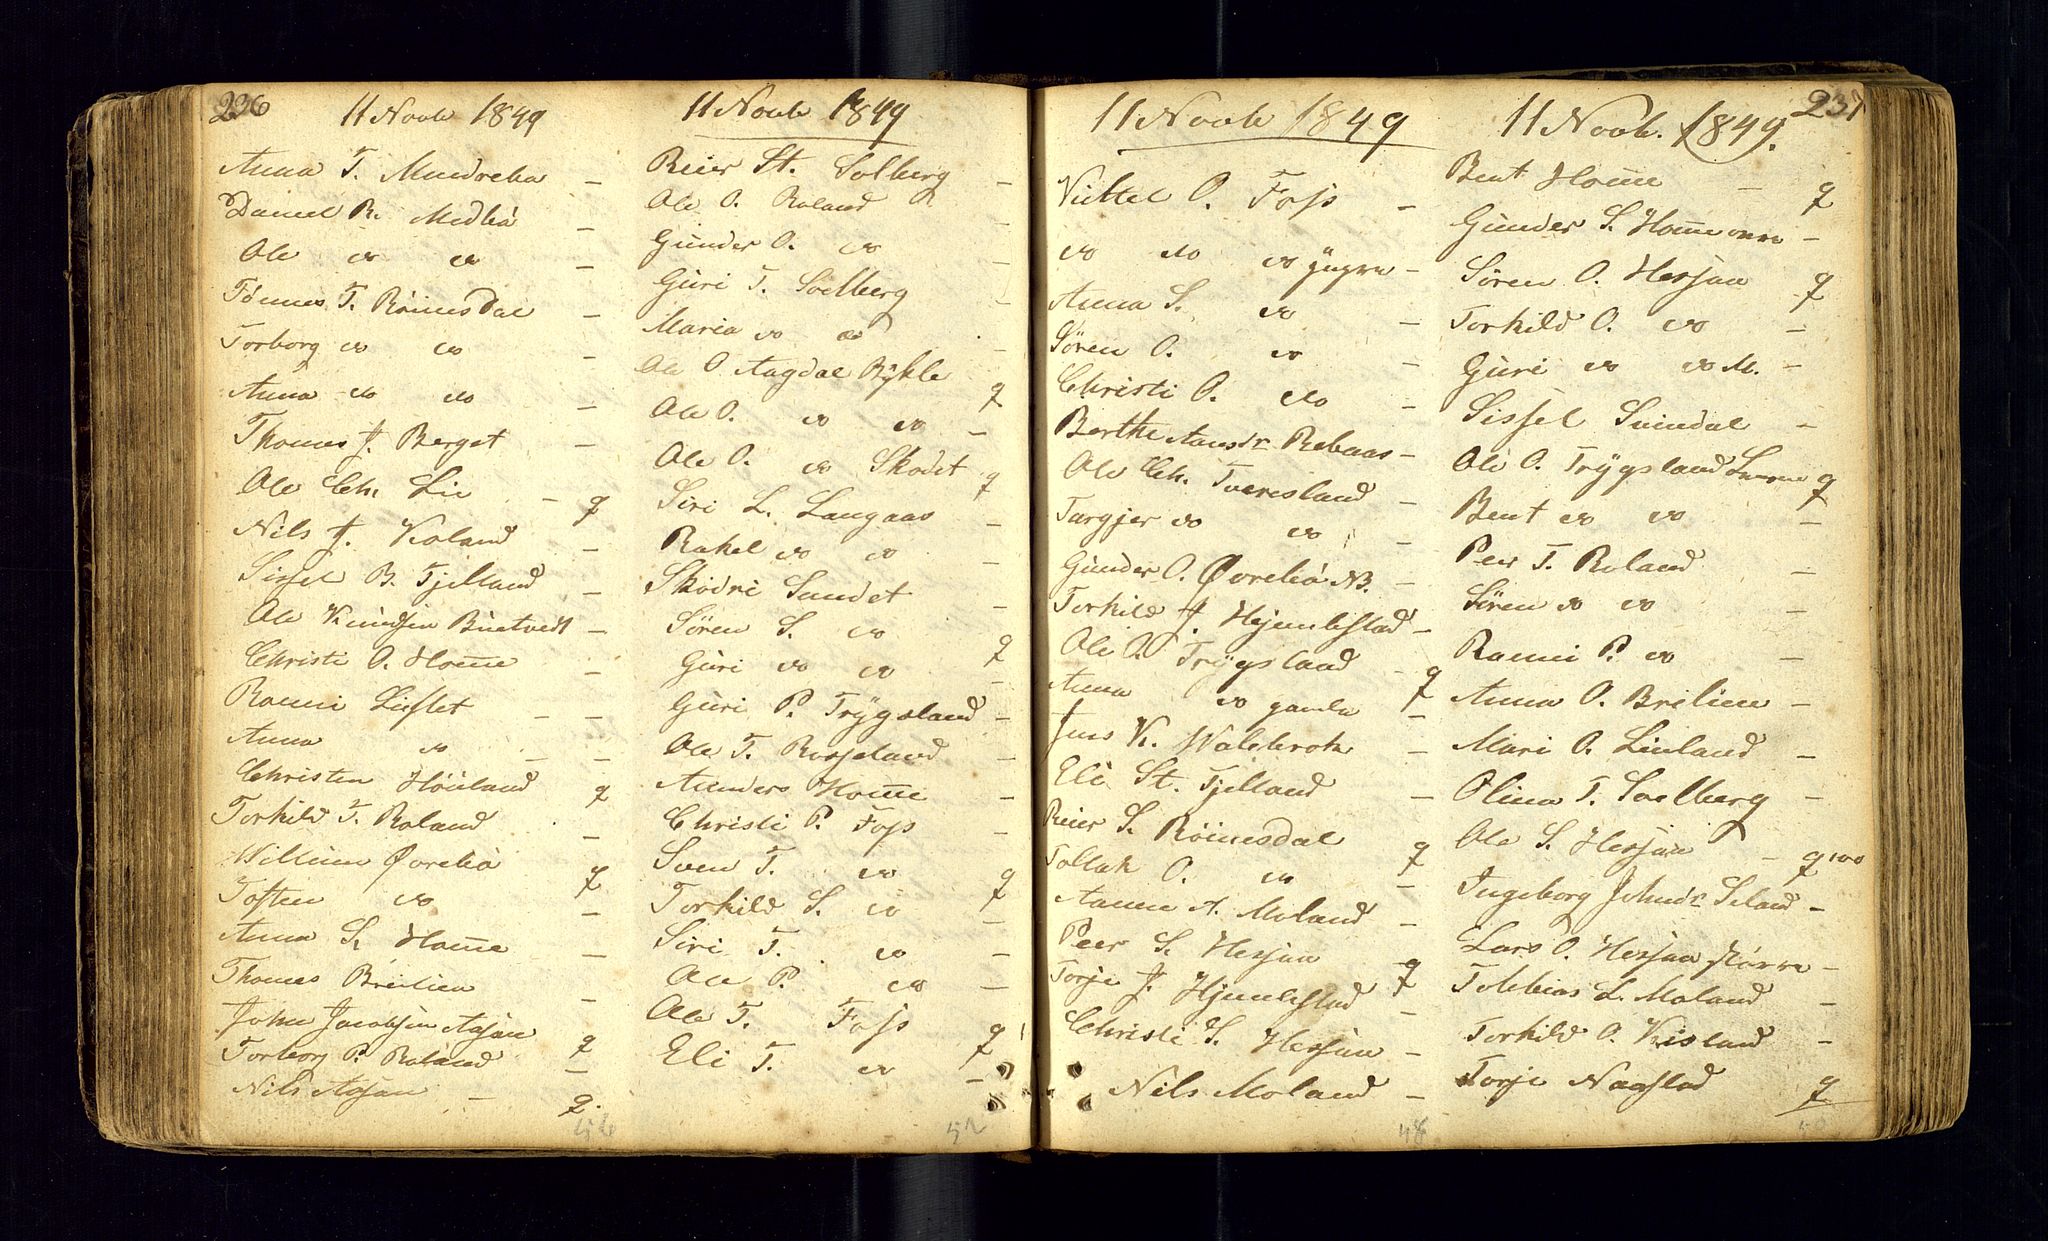 236
11 Novb 1849
Anna T. Mundreba –
Daniel R. Medbö –
Ole do do –
Tönnes T. Röinesdal –
Torborg do do –
Anna do do –
Thomes J. Berget –
Ole Chr. Lie – q
Nils J. Roland –
Sissel B. Tjelland –
Ole Knudsen Buetvedt –
Christi O. Home –
Ranni Lislet – –
Anna do – –
Christen Höiland q
Torkild T. Roland –
Willum Øvrebö q
Tosten do –
Anna S. Home –
Thomes Breilien –
John Jacobsen Aasen q
Torborg P. Roland –
Nils Aasan – q.
56
11 Novb 1849
Reier St. Solberg –
Ole O. Roland –
Gunder O. do –
Guri T. Soelberg –
Maria do do –
Ole O Augdal Bykle q
Ole O. do do –
Ole O. do Skodet q
Siri L. Langaas –
Rakel do do –
Skodri Sundet –
Sören S. do q
Guri do do –
Guri P. Trygsland –
Ole T. Rosseland –
Anders Home –
Christi P. Foss –
Sven T. do q
Torkild S. do –
Siri T. do –
Ole P. do –
Ole T. Foss q
Eli T. do –
52
11 Novb 1849
Kittel O. Foss –
do do do yngre –
Anna S. do –
Sören O. do –
Christi O. do –
Berthe Aansdr Rebaas –
Ole Chr. Tveresland –
Targjer do do –
Gunder O. Øvrebö NB. –
Torkild J. Hjemlestad –
Ole O. Trygsland q
Anna do gamle –
Jens K. Walebrok –
Eli St. Tjelland –
Reier S. Röinesdal q
Tollak O. do –
Aanen A. Moland –
Peer S. Hessan q
Torje J. Hjemlestad –
Christi S. Hessan –
Nils Moland –
48
237
11 Novb. 1849.
Bent Home – q
Gunder S. Home –
Sören O. Hessan q
Torkild O. do –
Guri do do M. –
Sissel Svindal –
Ole O. Trygsland q
Bent do do –
Peer T. Roland –
Sören do do –
Ranni P. do –
Anna O. Brilien –
Mari O. Lieland –
Olina T. Soelberg –
Ole S. Hessan – q
Ingeborg Johnsdr Seland –
Lars O. Hessan större –
Tobbias L. Moland –
Torkild O. Kisland –
Torje Nagstad q